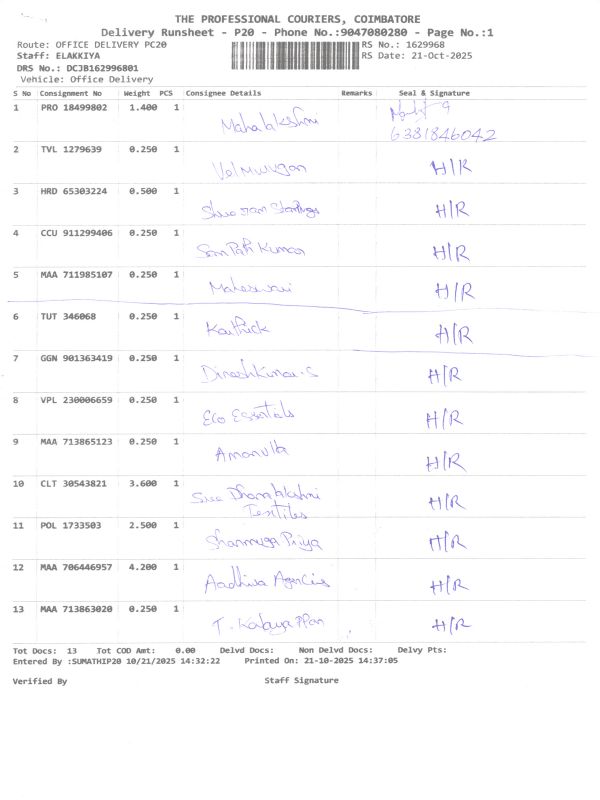 THE PROFESSIONAL COURIERS, COIMBATORE
Delivery Runsheet - P20 - Phone No.:9047080280 - Page No.:1
Route: OFFICE DELIVERY PC20 RS No.: 1629968
Staff: ELAKKIYA RS Date: 21-Oct-2025
DRS No.: DCJB162996801
Vehicle: Office Delivery
S No Consignment No Weight PCS Consignee Details Remarks Seal & Signature
1 PRO 18499802 1.400 1 Mahalakshmi
6381846042
2 TVL 1279639 0.250 1 Velmurugan H/R
3 HRD 65303224 0.500 1 Shree ram H/R
4 CCU 911299406 0.250 1 Sam Path Kumar H/R
5 MAA 711985107 0.250 1 Maheswari H/R
6 TUT 346068 0.250 1 Karthick H/R
7 GGN 901363419 0.250 1 Dineshkumar.S H/R
8 VPL 230006659 0.250 1 Eco Essentials H/R
9 MAA 713865123 0.250 1 Amanulla H/R
10 CLT 30543821 3.600 1 Sree Dhanalakshmi H/R
Textiles
11 POL 1733503 2.500 1 Shanmuga Priya H/R
12 MAA 706446957 4.200 1 Aadhiva Agencies H/R
13 MAA 713863020 0.250 1 T. H/R
Tot Docs: 13 Tot COD Amt: 0.00 Delvd Docs: Non Delvd Docs: Delvy Pts:
Entered By :SUMATHIP20 10/21/2025 14:32:22 Printed On: 21-10-2025 14:37:05
Verified By Staff Signature